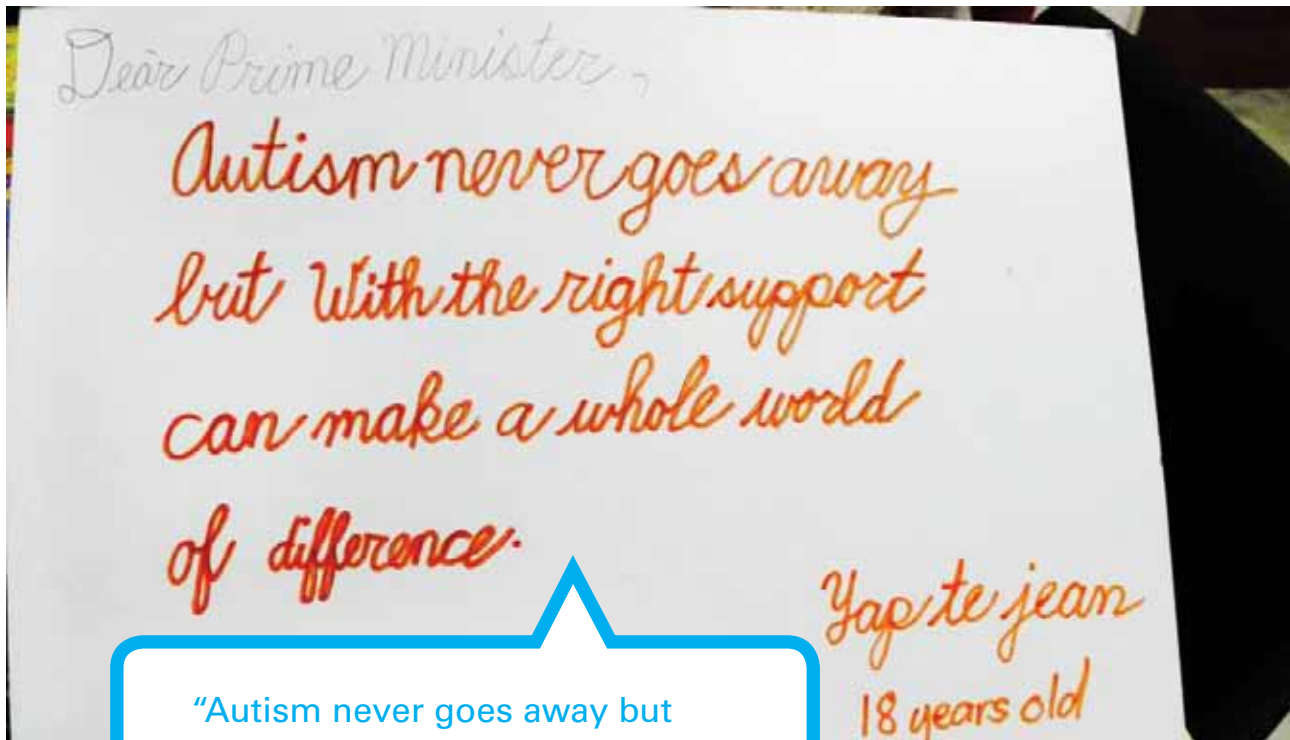 Dear Prime Minister,
Autism never goes away
but With the right support
can make a whole world
of difference.
Yap te jean
18 years old
"Autism never goes away but